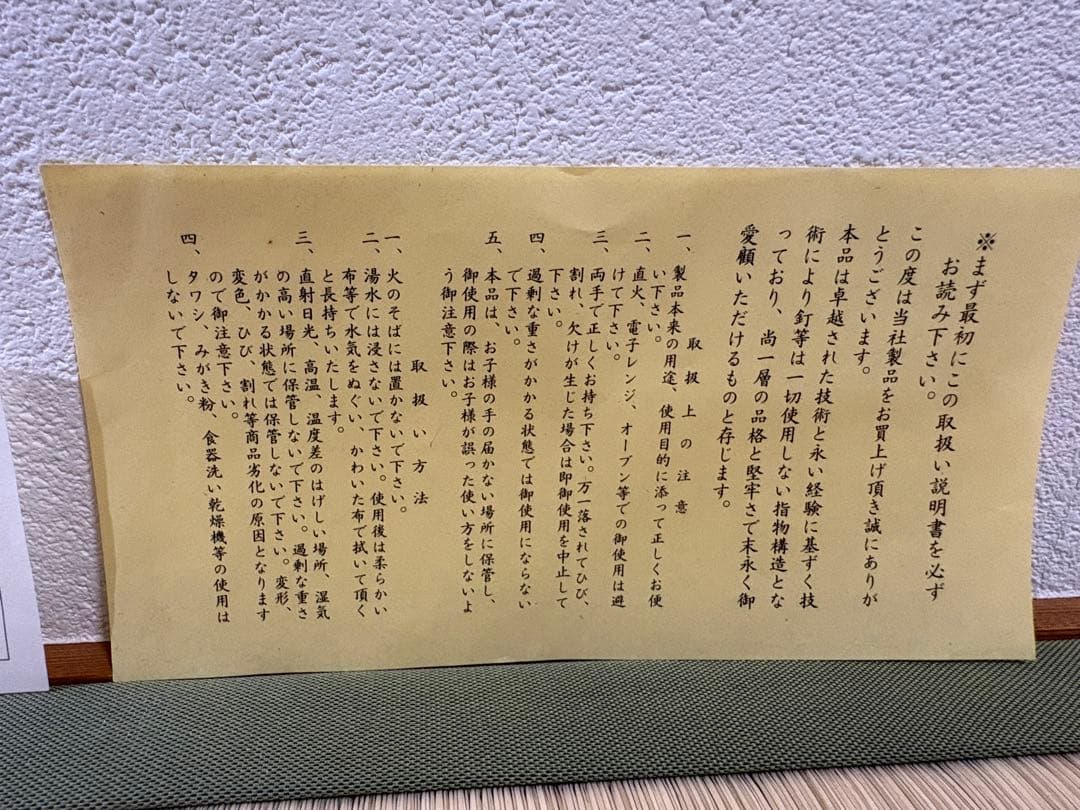 ※まず最初にこの取扱い説明書を必ず
お読み下さい。
この度は当社製品をお買上げ頂き誠にありが
とうございます。
本品は卓越された技術と永い経験に基ずく技
術により釘等は一切使用しない指物構造とな
っており、尚一層の品格と堅牢さで末永く御
愛顧いただけるものと存じます。
取扱上の注意
一、製品本来の用途、使用目的に添って正しくお使
い下さい。
二、直火、電子レンジ、オーブン等での御使用は避
けて下さい。
三、両手で正しくお持ち下さい。万一落されてひび、
割れ、欠けが生じた場合は即御使用を中止して
下さい。
四、過剰な重さがかかる状態では御使用にならない
で下さい。
五、本品は、お子様の手の届かない場所に保管し、
御使用の際はお子様が誤った使い方をしないよ
う御注意下さい。
取扱い方法
一、火のそばには置かないで下さい。
二、湯水には浸さないで下さい。使用後は柔らかい
布等で水気をぬぐい、かわいた布で拭いて頂く
と長持ちいたします。
三、直射日光、高温、温度差のはげしい場所、湿気
の高い場所に保管しないで下さい。過剰な重さ
がかかる状態では保管しないで下さい。変形、
変色、ひび、割れ等商品劣化の原因となります
ので御注意下さい。
四、タワシ、みがき粉、食器洗い乾燥機等の使用は
しないで下さい。